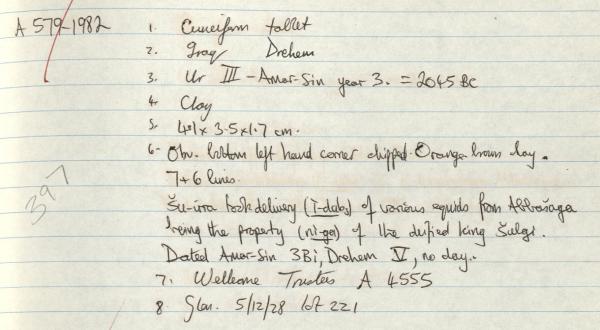 A 579-1982
1. Cuneiform tablet
2. Iraq Drehem
3. Ur III - Amar-Sin year 3. = 2045 BC
4. Clay
5. 4.1 x 3.5 x 1.7 cm.
6. Obv. bottom left hand corner chipped. Orange brown clay.
7+6 lines.
397
Šu-urra took delivery (ī-dab₅) of various equids from Abbašaga
being the property (nì-ga) of the deified king Šulgi.
Dated Amar-Sin 3Bi, Drehem V, no day.
7. Wellcome Trustees A 4555
8 Glen. 5/12/28 lot 221